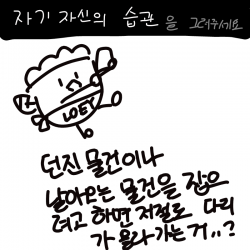 자기 자신의 습관을 그려주세요
LOEY
던진 물건이나
날아오는 물건을 잡으
려고 하면 저절로 다리
가 올라가는거..?